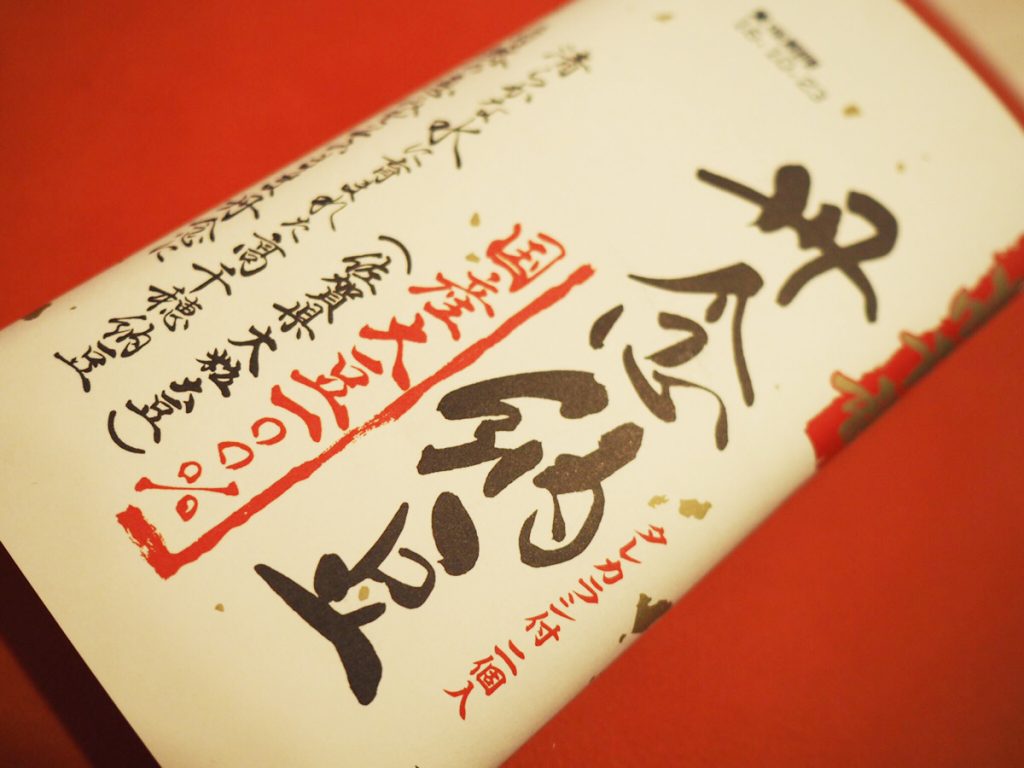 丹念納豆
タレカラシ付 二個入
国産大豆一〇〇%
(佐賀県 大粒大豆)
清らかな水に育まれた高千穂納豆
丹念に